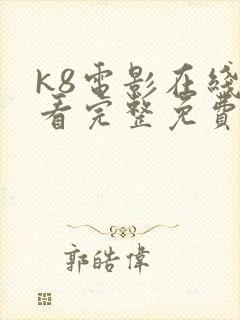 k8電影在綫
看完整免費
郭皓偉